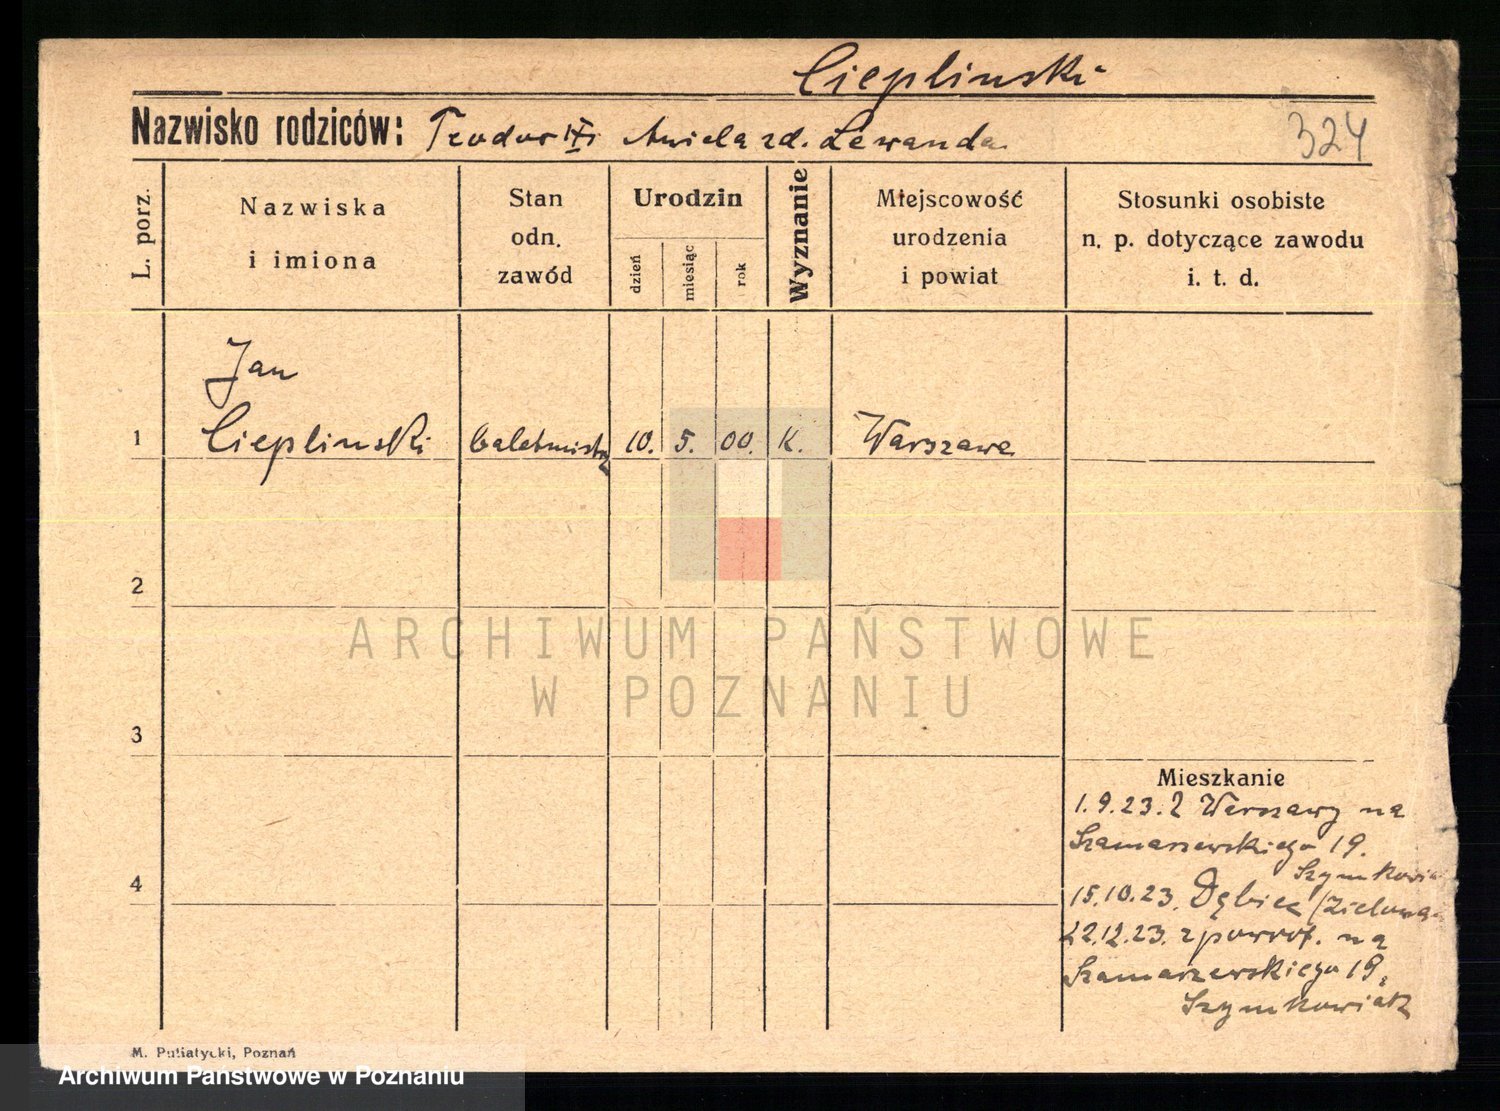 Cieplinski
Nazwisko rodziców: Teodor i Aniela zd. Lewanda
324
L. porz.
Nazwiska
i imiona
Stan
odn.
zawód
Urodzin
dzień
miesiąc
rok
Wyznanie
Miejscowość
urodzenia
i powiat
Stosunki osobiste
n. p. dotyczące zawodu
i. t. d.
Jan
1 Cieplinski baletmistrz 10. 5. 00. K. Warszawa
2
ARCHIWUM PAŃSTWOWE
W POZNANIU
3
Mieszkanie
1.9.23. z Warszawy na
Szamarzewskiego 19.
Szymkowiak
4
15.10.23. Dębiec (Zielona
22.12.23. z powrot. na
Szamarzewskiego 19,
Szymkowiak
M. Putiatycki, Poznań
Archiwum Państwowe w Poznaniu